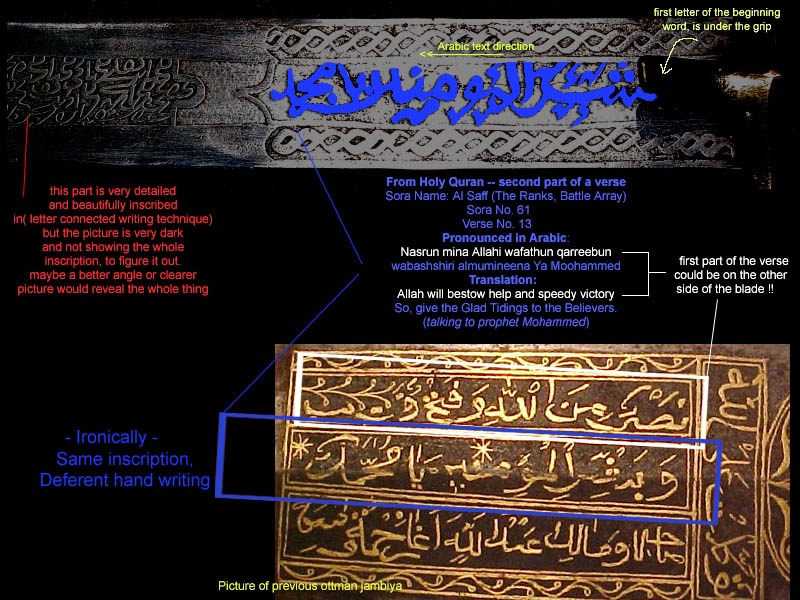 first letter of the beginning
word, is under the grip
Arabic text direction
شر المومنين يا محمد
this part is very detailed
and beautifully inscribed
in( letter connected writing technique)
but the picture is very dark
and not showing the whole
inscription, to figure it out.
maybe a better angle or clearer
picture would reveal the whole thing
From Holy Quran -- second part of a verse
Sora Name: Al Saff (The Ranks, Battle Array)
Sora No. 61
Verse No. 13
Pronounced in Arabic:
Nasrun mina Allahi wafathun qarreebun
wabashshiri almumineena Ya Moohammed
Translation:
Allah will bestow help and speedy victory
So, give the Glad Tidings to the Believers.
(talking to prophet Mohammed)
first part of the verse
could be on the other
side of the blade !!
- Ironically -
Same inscription,
Deferent hand writing
نصر من الله وفتح قريب
وبشر المؤمنين يا محمد
ومالك عبد الله آغا
Picture of previous ottman jambiya